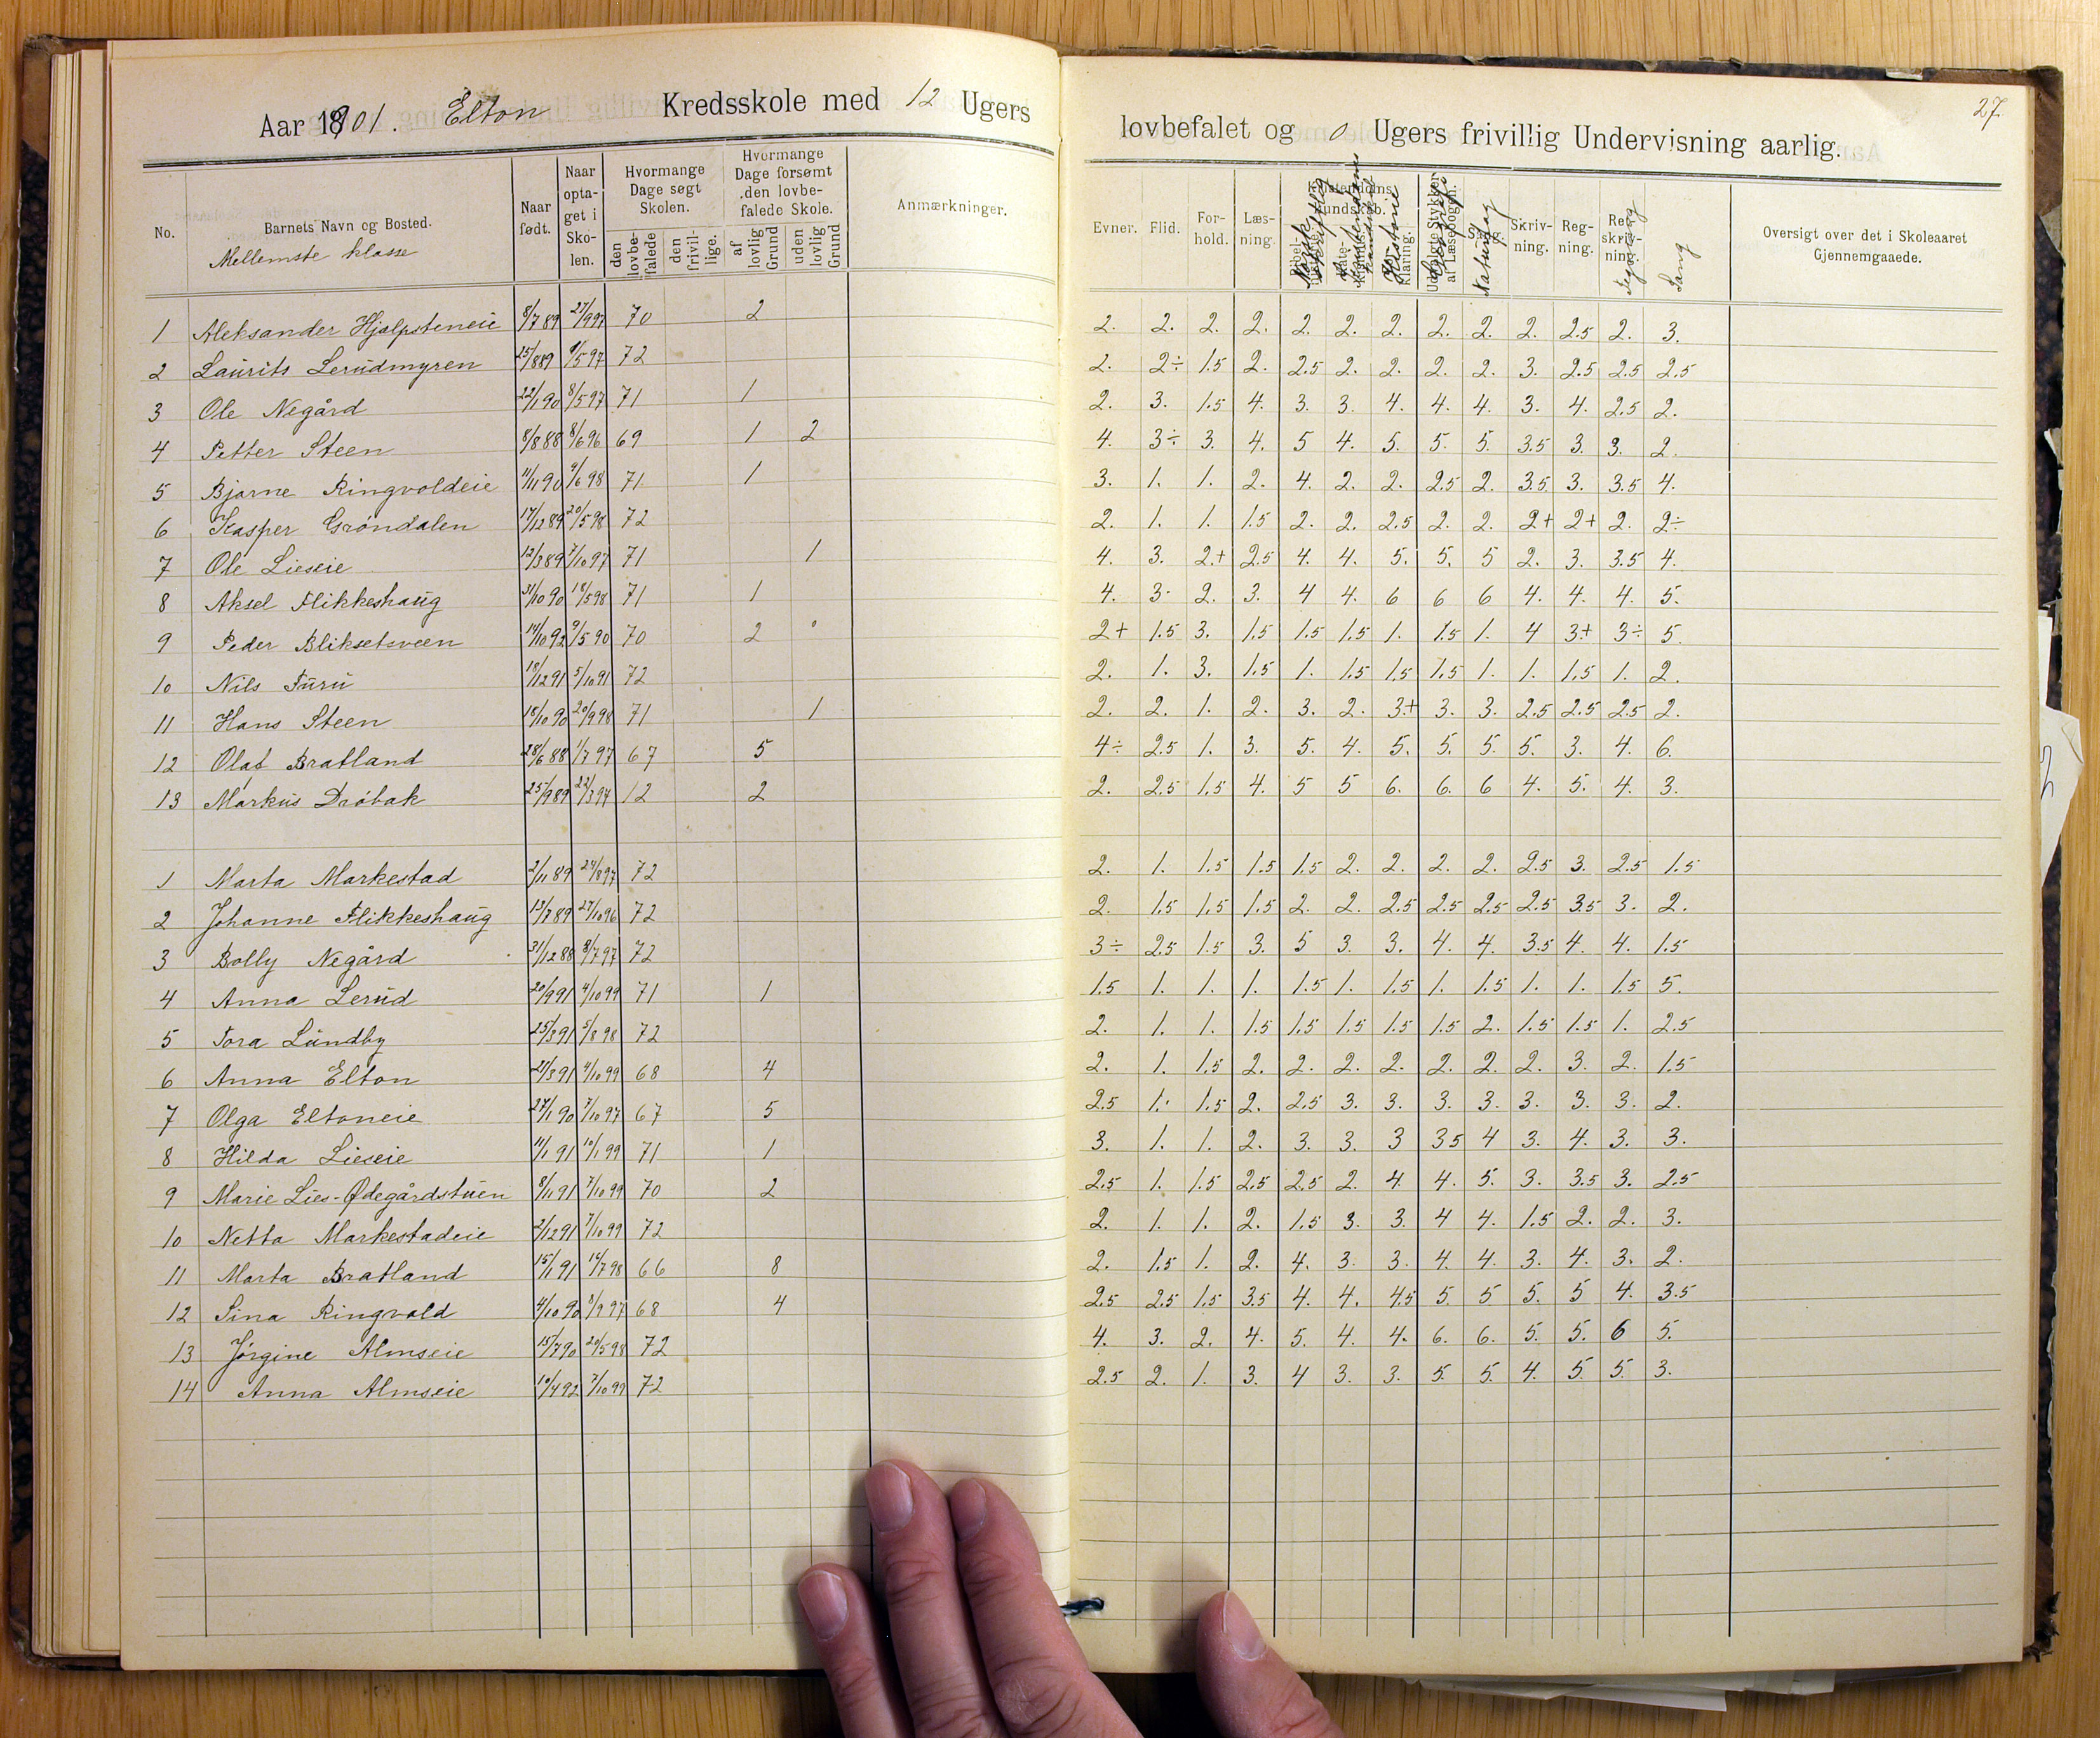 Aar 1901. Elton Kredsskole med 12 Ugers
No. Barnets Navn og Bosted. Naar født. Naar optaget i Skolen. Hvormange Dage søgt Skolen. Hvormange Dage forsømt den lovbefalede Skole. Anmærkninger.
Mellemste klasse
den lovbefalede den frivillige. af lovlig Grund uden lovlig Grund
1 Aleksander Hjelpsteneie 8/7 89 27/9 97 70 2
2 Laurits Lerudmyren 25/8 89 9/5 97 72
3 Ole Negård 22/1 90 8/5 97 71 1
4 Petter Steen 8/8 88 8/6 96 69 1 2
5 Bjarne Ringvoldeie 11/11 90 9/6 98 71 1
6 Kasper Grøndalen 17/12 89 20/5 98 72
7 Ole Lieseie 12/3 89 7/10 97 71 1
8 Aksel Flikkeshaug 31/10 90 18/5 98 71 1
9 Peder Bliksetsveen 14/10 92 9/5 90 70 2
10 Nils Furu 18/12 91 5/10 91 72
11 Hans Steen 18/10 90 20/9 98 71 1
12 Olaf Bratland 28/6 88 1/7 97 67 5
13 Markus Drøbak 25/9 89 22/3 94 12 2
1 Marta Markestad 2/11 89 24/8 97 72
2 Johanne Flikkeshaug 13/7 89 27/10 96 72
3 Bolly Negård 31/12 88 8/7 97 72
4 Anna Lerud 20/9 91 4/10 99 71 1
5 Tora Lundby 25/3 91 5/8 98 72
6 Anna Elton 21/3 91 4/10 99 68 4
7 Olga Eltoneie 27/1 90 7/10 97 67 5
8 Hilda Lieseie 11/1 91 10/1 99 71 1
9 Marie Lies-Ødegårdstuen 8/11 91 7/10 99 70 2
10 Netta Markestadeie 2/12 91 7/10 99 72
11 Marta Bratland 15/1 91 14/7 98 66 8
12 Sina Ringvold 4/10 90 8/9 97 68 4
13 Jørgine Almseie 15/7 90 20/5 98 72
14 Anna Almseie 10/4 92 7/10 99 72
27
lovbefalet og 0 Ugers frivillig Undervisning aarlig.
Evner. Flid. Forhold. Læsning. Kristendomskundskab. Udvalgte Stykker af Læsebogen. Sang. Skrivning. Regning. Retskrivning. Oversigt over det i Skoleaaret Gjennemgaaede.
Historie Naturfag Tegning Sang
2. 2. 2. 2. 2. 2. 2. 2. 2. 2. 2.5 2. 3.
2. 2÷ 1.5 2. 2.5 2. 2. 2. 2. 3. 2.5 2.5 2.5
2. 3. 1.5 4. 3. 3. 4. 4. 4. 3. 4. 2.5 2.
4. 3÷ 3. 4. 5 4. 5. 5. 5. 3.5 3. 3. 2.
3. 1. 1. 2. 4. 2. 2. 2.5 2. 3.5 3. 3.5 4.
2. 1. 1. 1.5 2. 2. 2.5 2. 2. 2+ 2+ 2. 2÷
4. 3. 2+ 2.5 4. 4. 5. 5. 5 2. 3. 3.5 4.
4. 3. 2. 3. 4 4. 6 6 6 4. 4. 4. 5.
2+ 1.5 3. 1.5 1.5 1.5 1. 1.5 1. 4 3+ 3÷ 5.
2. 1. 3. 1.5 1. 1.5 1.5 1.5 1. 1. 1.5 1. 2.
2. 2. 1. 2. 3. 2. 3+ 3. 3. 2.5 2.5 2.5 2.
4÷ 2.5 1. 3. 5. 4. 5. 5. 5. 5. 3. 4. 6.
2. 2.5 1.5 4. 5 5 6. 6. 6 4. 5. 4. 3.
2. 1. 1.5 1.5 1.5 2. 2. 2. 2. 2.5 3. 2.5 1.5
2. 1.5 1.5 1.5 2. 2. 2.5 2.5 2.5 2.5 3.5 3. 2.
3÷ 2.5 1.5 3. 5 3. 3. 4. 4. 3.5 4. 4. 1.5
1.5 1. 1. 1. 1.5 1. 1.5 1. 1.5 1. 1. 1.5 5.
2. 1. 1. 1.5 1.5 1.5 1.5 1.5 2. 1.5 1.5 1. 2.5
2. 1. 1.5 2. 2. 2. 2. 2. 2. 2. 3. 2. 1.5
2.5 1. 1.5 2. 2.5 3. 3. 3. 3. 3. 3. 3. 2.
3. 1. 1. 2. 3. 3. 3 35 4 3. 4. 3. 3.
2.5 1. 1.5 2.5 2.5 2. 4. 4. 5. 3. 3.5 3. 2.5
2. 1. 1. 2. 1.5 3. 3. 4 4. 1.5 2. 2. 3.
2. 1.5 1. 2. 4. 3. 3. 4. 4. 3. 4. 3. 2.
2.5 2.5 1.5 3.5 4. 4. 4.5 5. 5 5. 5 4. 3.5
4. 3. 2. 4. 5. 4. 4. 6. 6. 5. 5. 6 5.
2.5 2. 1. 3. 4 3. 3. 5. 5. 4. 5. 5. 3.